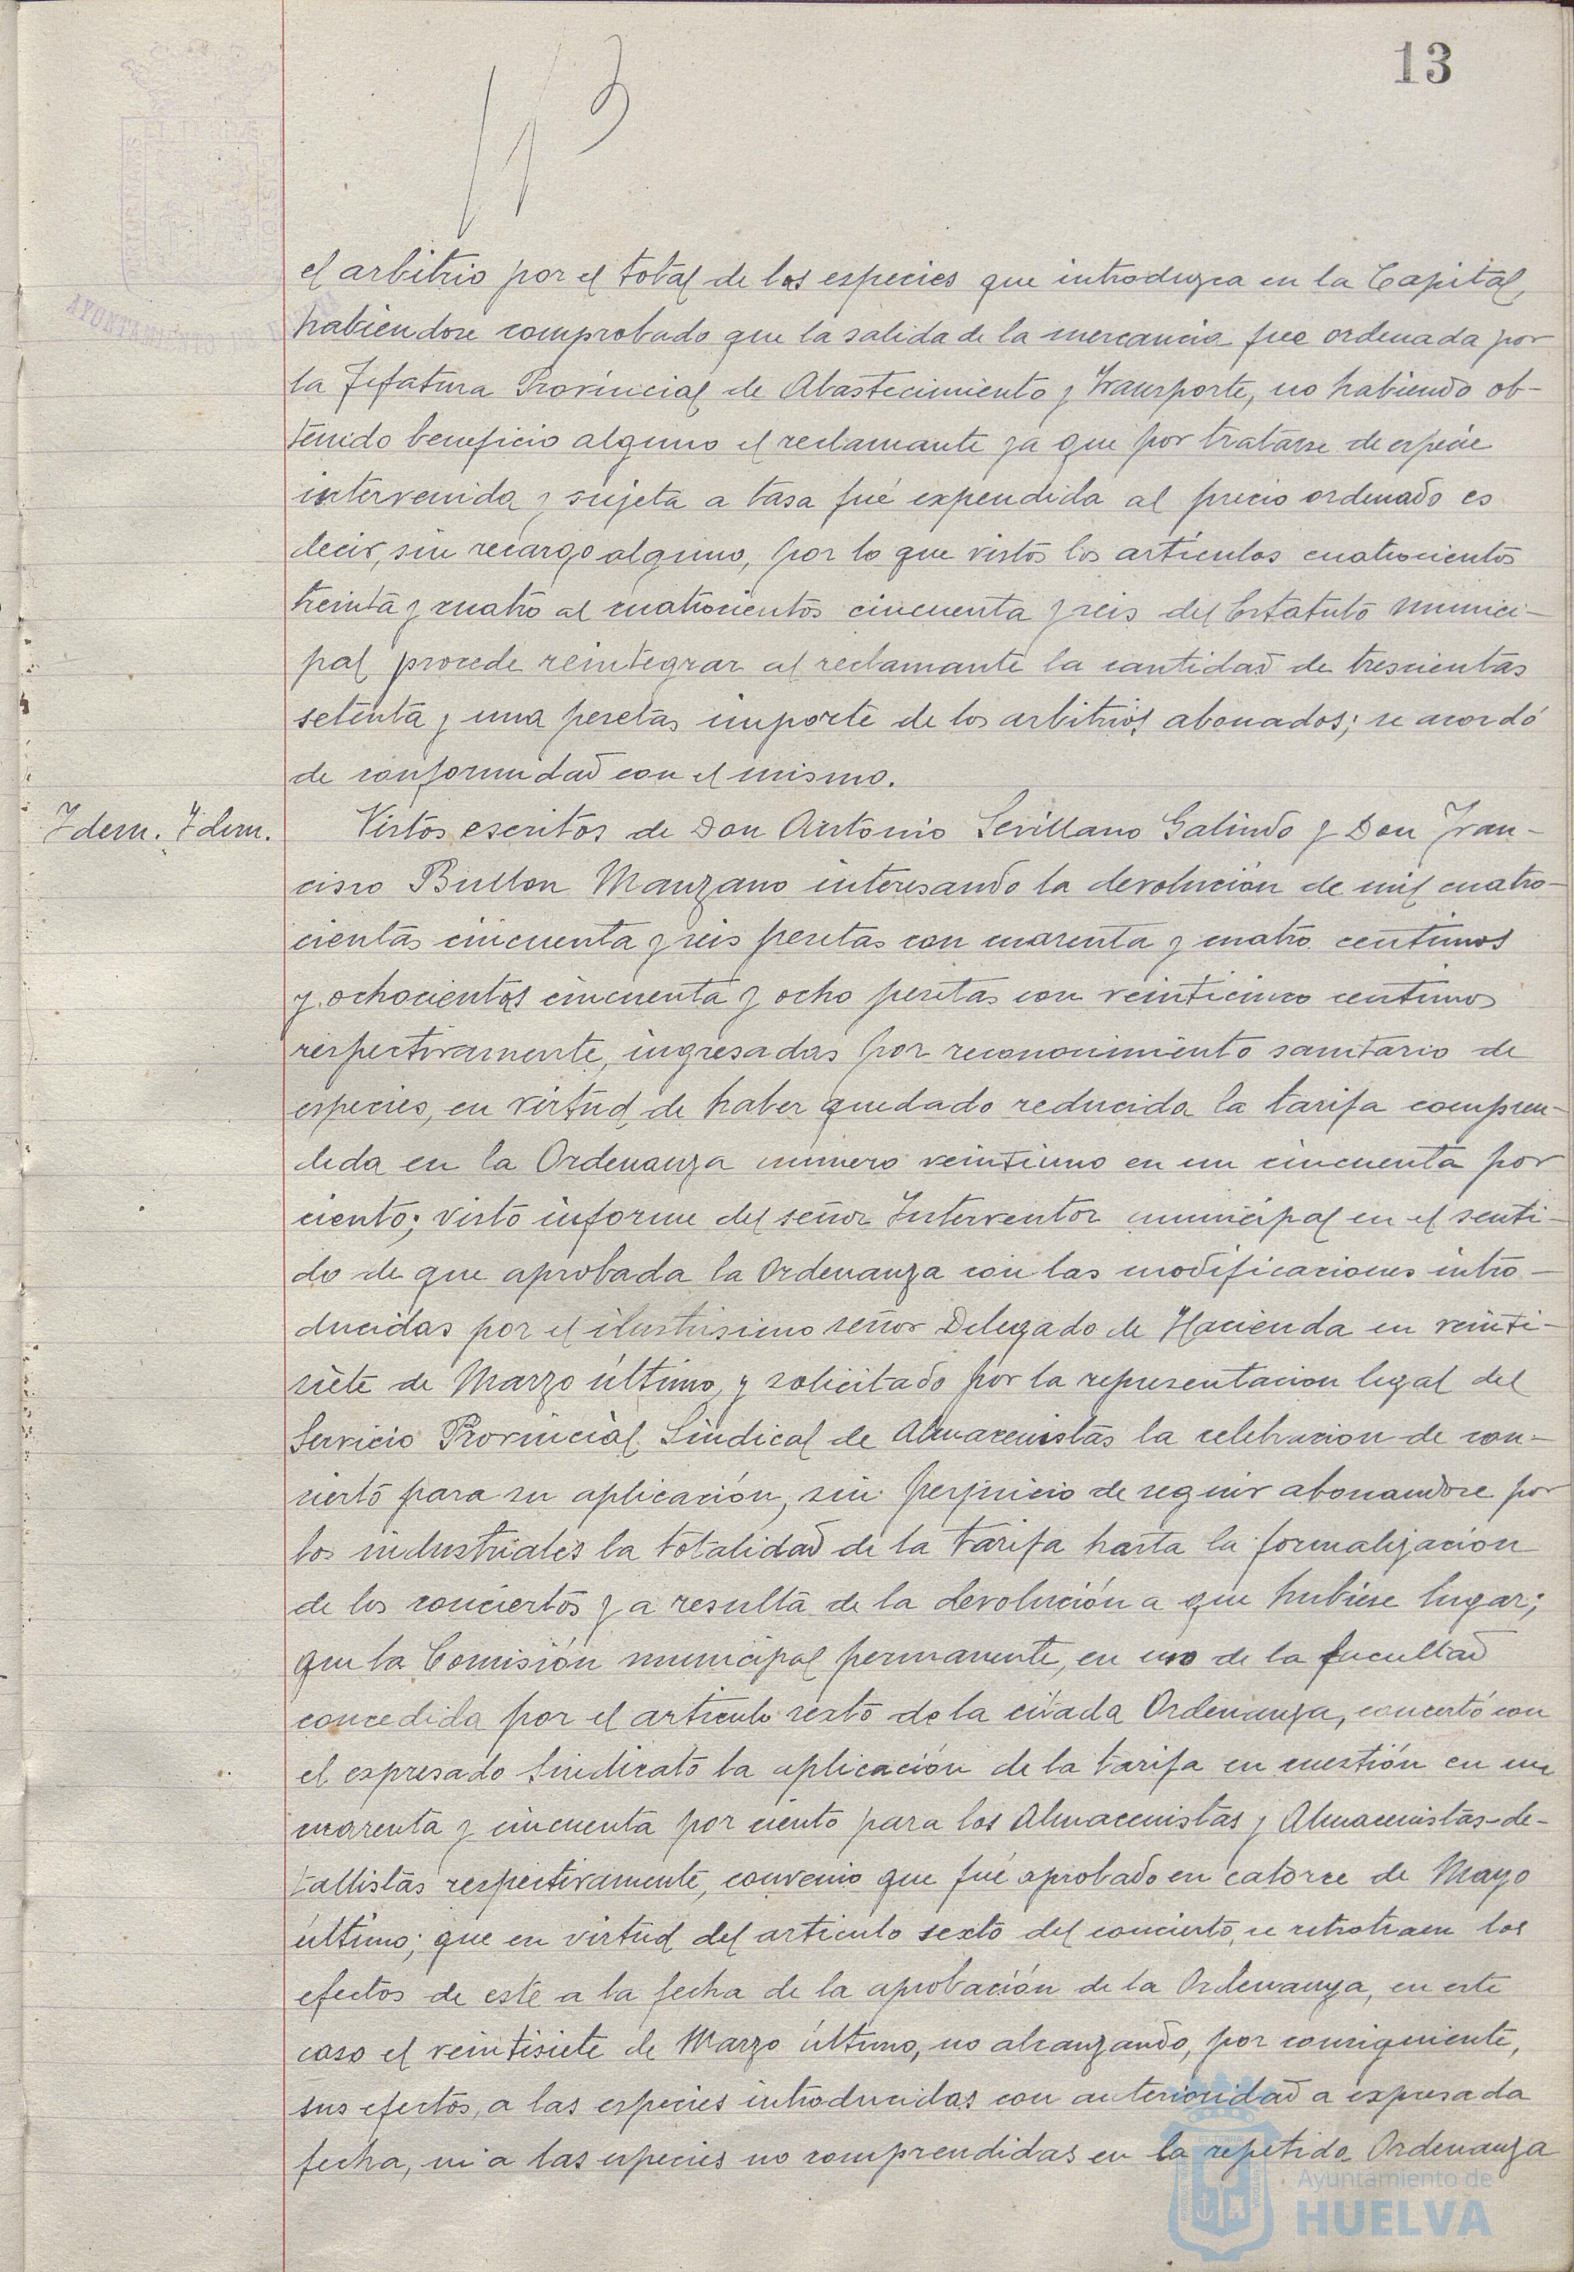 13
el arbitrio por el total de las especies que introduzca en la Capital,
habiendose comprobado que la salida de la mercancia fue ordenada por
la Jefatura Provincial de Abastecimiento y Transporte, no habiendo ob-
tenido beneficio alguno el reclamante ya que por tratarse de especie
intervenida y sujeta a tasa fué expendida al precio ordenado es
decir, sin recargo alguno, por lo que vistos los articulos cuatrocientos
treinta y cuatro al cuatrocientos cincuenta y seis del Estatuto Munici-
pal procede reintegrar al reclamante la cantidad de trescientas
setenta y una pesetas importe de los arbitrios abonados; se acordó
de conformidad con el mismo.
Idem. Idem.
Vistos escritos de Don Antonio Sevillano Galindo y Don Fran-
cisco Bullon Manzano interesando la devolución de mil cuatro-
cientas cincuenta y seis pesetas con cuarenta y cuatro centimos
y ochocientas cincuenta y ocho pesetas con veinticinco centimos
respectivamente, ingresadas por reconocimiento sanitario de
especies, en virtud de haber quedado reducida la tarifa compren-
dida en la Ordenanza numero veintiuno en un cincuenta por
ciento; visto informe del señor Interventor municipal en el senti-
do de que aprobada la Ordenanza con las modificaciones intro-
ducidas por el ilustrisimo señor Delegado de Hacienda en veinti-
siete de Marzo último, y solicitado por la representacion legal del
Servicio Provincial Sindical de Almacenistas la celebracion de con-
cierto para su aplicación, sin perjuicio de seguir abonandose por
los industriales la totalidad de la tarifa hasta la formalizacion
de los conciertos y a resulta de la devolución a que hubiese lugar;
que la Comisión municipal permanente, en uso de la facultad
concedida por el articulo sexto de la citada Ordenanza, concertó con
el expresado Sindicato la aplicación de la tarifa en cuestión en un
cuarenta y cincuenta por ciento para los Almacenistas y Almacenistas-de-
tallistas respectivamente, convenio que fué aprobado en catorce de Mayo
último; que en virtud del articulo sexto del concierto, se retrotraen los
efectos de este a la fecha de la aprobación de la Ordenanza, en este
caso el veintisiete de Marzo último, no alcanzando, por consiguiente,
sus efectos, a las especies introducidas con anterioridad a expresada
fecha, ni a las especies no comprendidas en la repetida Ordenanza
Ayuntamiento de
HUELVA